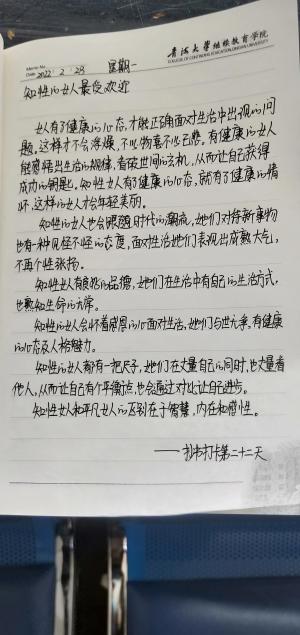 青海大学继续教育学院
COLLEGE OF CONTINUING EDUCATION, QINGHAI UNIVERSITY
Memo No.
Date 2022 2 28 星期一
知性的女人最受欢迎
女人有了健康的心态,才能正确面对生活中出现的问
题。这样才不会浮燥,不以物喜不以己悲。有健康的女人
能感悟出生活的规律,看破世间的玄机,从而让自己获得
成功的钥匙。知性女人有了健康的心态,就有了健康的情
怀,这样的女人才会年轻美丽。
知性的女人也会跟随时代的潮流,她们对待新事物
也有一种见怪不怪的态度,面对生活她们表现出成熟大气,
不再个性张扬。
知性女人有良好的品德,她们在生活中有自己的生活方式,
也熟知生命的无常。
知性的女人会怀着感恩的心面对生活,她们与世无争,有健康
的心态及人格魅力。
知性的女人都有一把尺子,她们在丈量自己的同时,也丈量着
他人,从而让自己有个平衡点,也会通过对比让自己进步。
知性女人和平凡女人的区别在于智慧,内在和感性。
——抄书打卡第二十二天